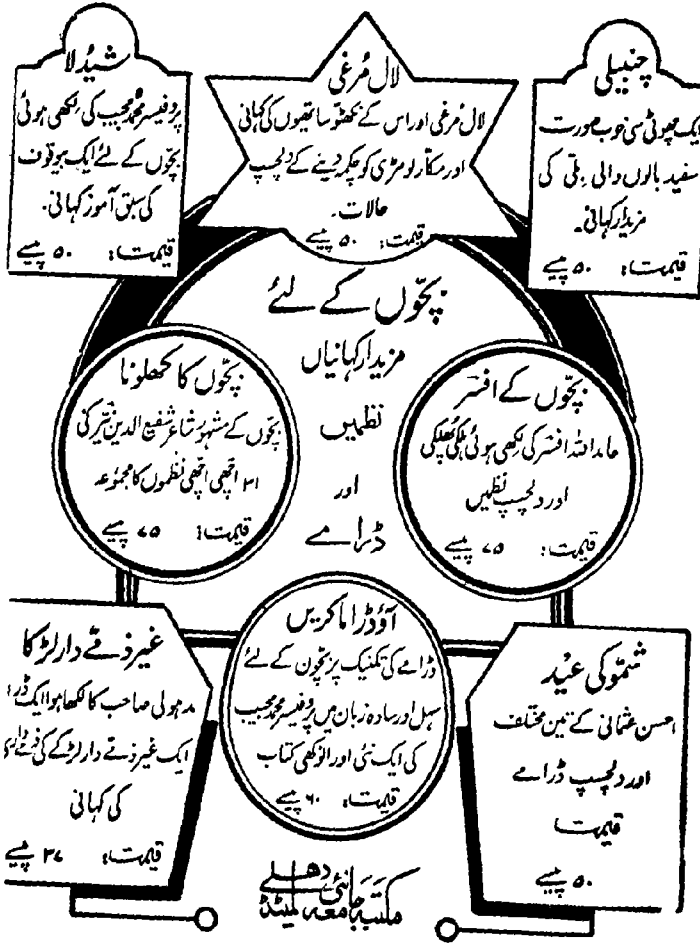 چنبیلی
ایک چھوٹی سی خوب صورت
سفید بالوں والی بلی کی
مزیدار کہانی۔
قیمت: ۵۰ پیسے
لال مُرغی
لال مُرغی اور اس کے نکھٹو ساتھیوں کی کہانی
اور مکار لومڑی کو چکمہ دینے کے دلچسپ
حالات۔
قیمت: ۵۰ پیسے
شیدُلا
پروفیسر محمد مجیب کی لکھی ہوئی
بچّوں کے لئے ایک بیوقوف
کی سبق آموز کہانی۔
قیمت: ۵۰ پیسے
بچّوں کے لئے
مزیدار کہانیاں
نظمیں
اور
ڈرامے
بچّوں کے افسر
حامد اللہ افسر کی لکھی ہوئی ہلکی پھلکی
اور دلچسپ نظمیں
قیمت: ۷۵ پیسے
بچّوں کا کھلونا
بچّوں کے مشہور شاعر شفیع الدین نیّر کی
۳۱ اچھی اچھی نظموں کا مجموعہ
قیمت: ۷۵ پیسے
شمّو کی عید
احسن عثمانی کے تین مختلف
اور دلچسپ ڈرامے
قیمت
۵۰ پیسے
آؤ ڈراما کریں
ڈرامے کی تکنیک پر بچّوں کے لئے
سہل اور سادہ زبان میں پروفیسر محمد مجیب
کی ایک نئی اور انوکھی کتاب
قیمت: ۶۰ پیسے
غیر ذمّے دار لڑکا
مدہولی صاحب کا لکھا ہوا ایک
ایک غیر ذمّے دار لڑکے کی
کی کہانی
قیمت: ۳۷ پیسے
مکتبہ جامعہ لمیٹڈ نئی دھلی